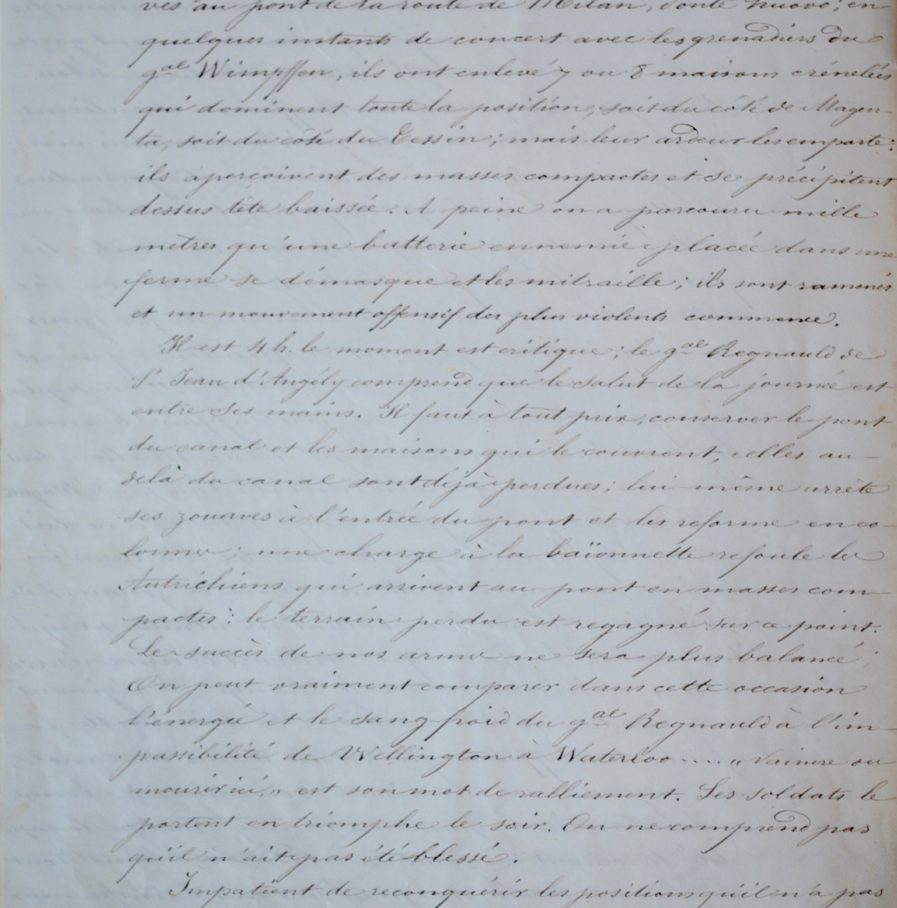 vés au pont de la route de Milan, Ponte Nuovo; en
quelques instants de concert avec les grenadiers du
gal Wimpffen, ils ont enlevé 7 ou 8 maisons crénelées
qui dominent toute la position, soit du côté de Magen-
ta, soit du côté du Tessin; mais leur ardeur les emporte:
ils aperçoivent des masses compactes et se précipitent
dessus tête baissée. A peine on a parcouru mille
mètres qu'une batterie ennemie placée dans une
ferme se démasque et les mitraille; ils sont ramenés
et un mouvement offensif des plus violents commence.
Il est 4 h. le moment est critique; le gal Regnauld de
St Jean d'Angély comprend que le salut de la journée est
entre ses mains. Il faut à tout prix, conserver le pont
du canal et les maisons qui le couvrent, celles au-
delà du canal sont déjà perdues; lui même arrête
ses zouaves à l'entrée du pont et les reforme en co-
lonne; une charge à la baïonnette refoule les
Autrichiens qui arrivent au pont en masses com-
pactes: le terrain perdu est regagné sur ce point.
Le succès de nos armes ne sera plus balancé;
On peut vraiment comparer dans cette occasion
l'énergie et le sang froid du gal Regnauld à l'im-
passibilité de Wellington à Waterloo .... „ Vaincre ou
mourir ici, „ est son mot de ralliement. Ses soldats le
portent en triomphe le soir. On ne comprend pas
qu'il n'ait pas été blessé.
Impatient de reconquérir les positions qu'il n'a pas